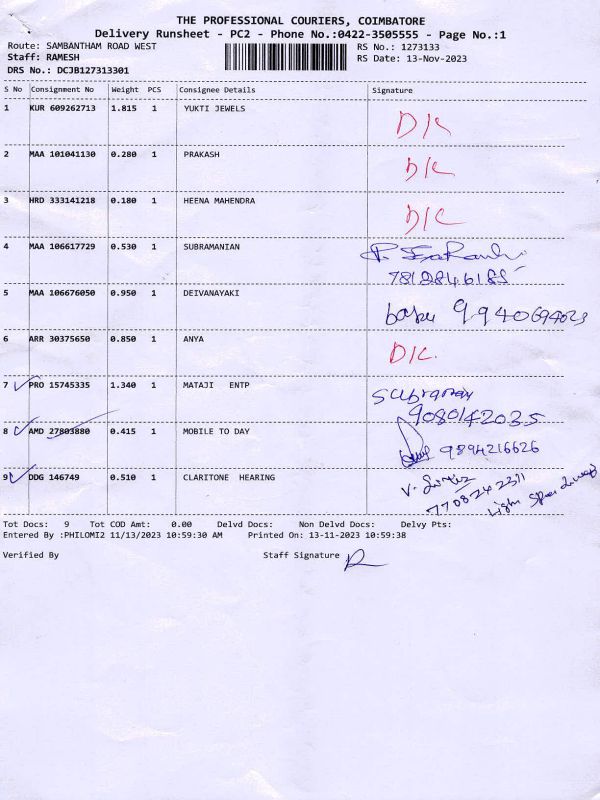 THE PROFESSIONAL COURIERS, COIMBATORE
Delivery Runsheet - PC2 - Phone No.:0422-3505555 - Page No.:1
Route: SAMBANTHAM ROAD WEST
Staff: RAMESH
DRS No.: DCJB127313301
RS No.: 1273133
RS Date: 13-Nov-2023
S No Consignment No Weight PCS Consignee Details Signature
1 KUR 609262713 1.815 1 YUKTI JEWELS D/C
2 MAA 101041130 0.280 1 PRAKASH D/C
3 HRD 333141218 0.180 1 HEENA MAHENDRA D/C
4 MAA 106617729 0.530 1 SUBRAMANIAN
7812846185
5 MAA 106676050 0.950 1 DEIVANAYAKI
6 ARR 30375650 0.850 1 ANYA D/C.
7 PRO 15745335 1.340 1 MATAJI ENTP
9080142035
8 AMD 27803880 0.415 1 MOBILE TO DAY 9894216626
9 DDG 146749 0.510 1 CLARITONE HEARING
7708242311
Tot Docs: 9 Tot COD Amt: 0.00 Delvd Docs: Non Delvd Docs: Delvy Pts:
Entered By :PHILOMI2 11/13/2023 10:59:30 AM Printed On: 13-11-2023 10:59:38
Verified By Staff Signature